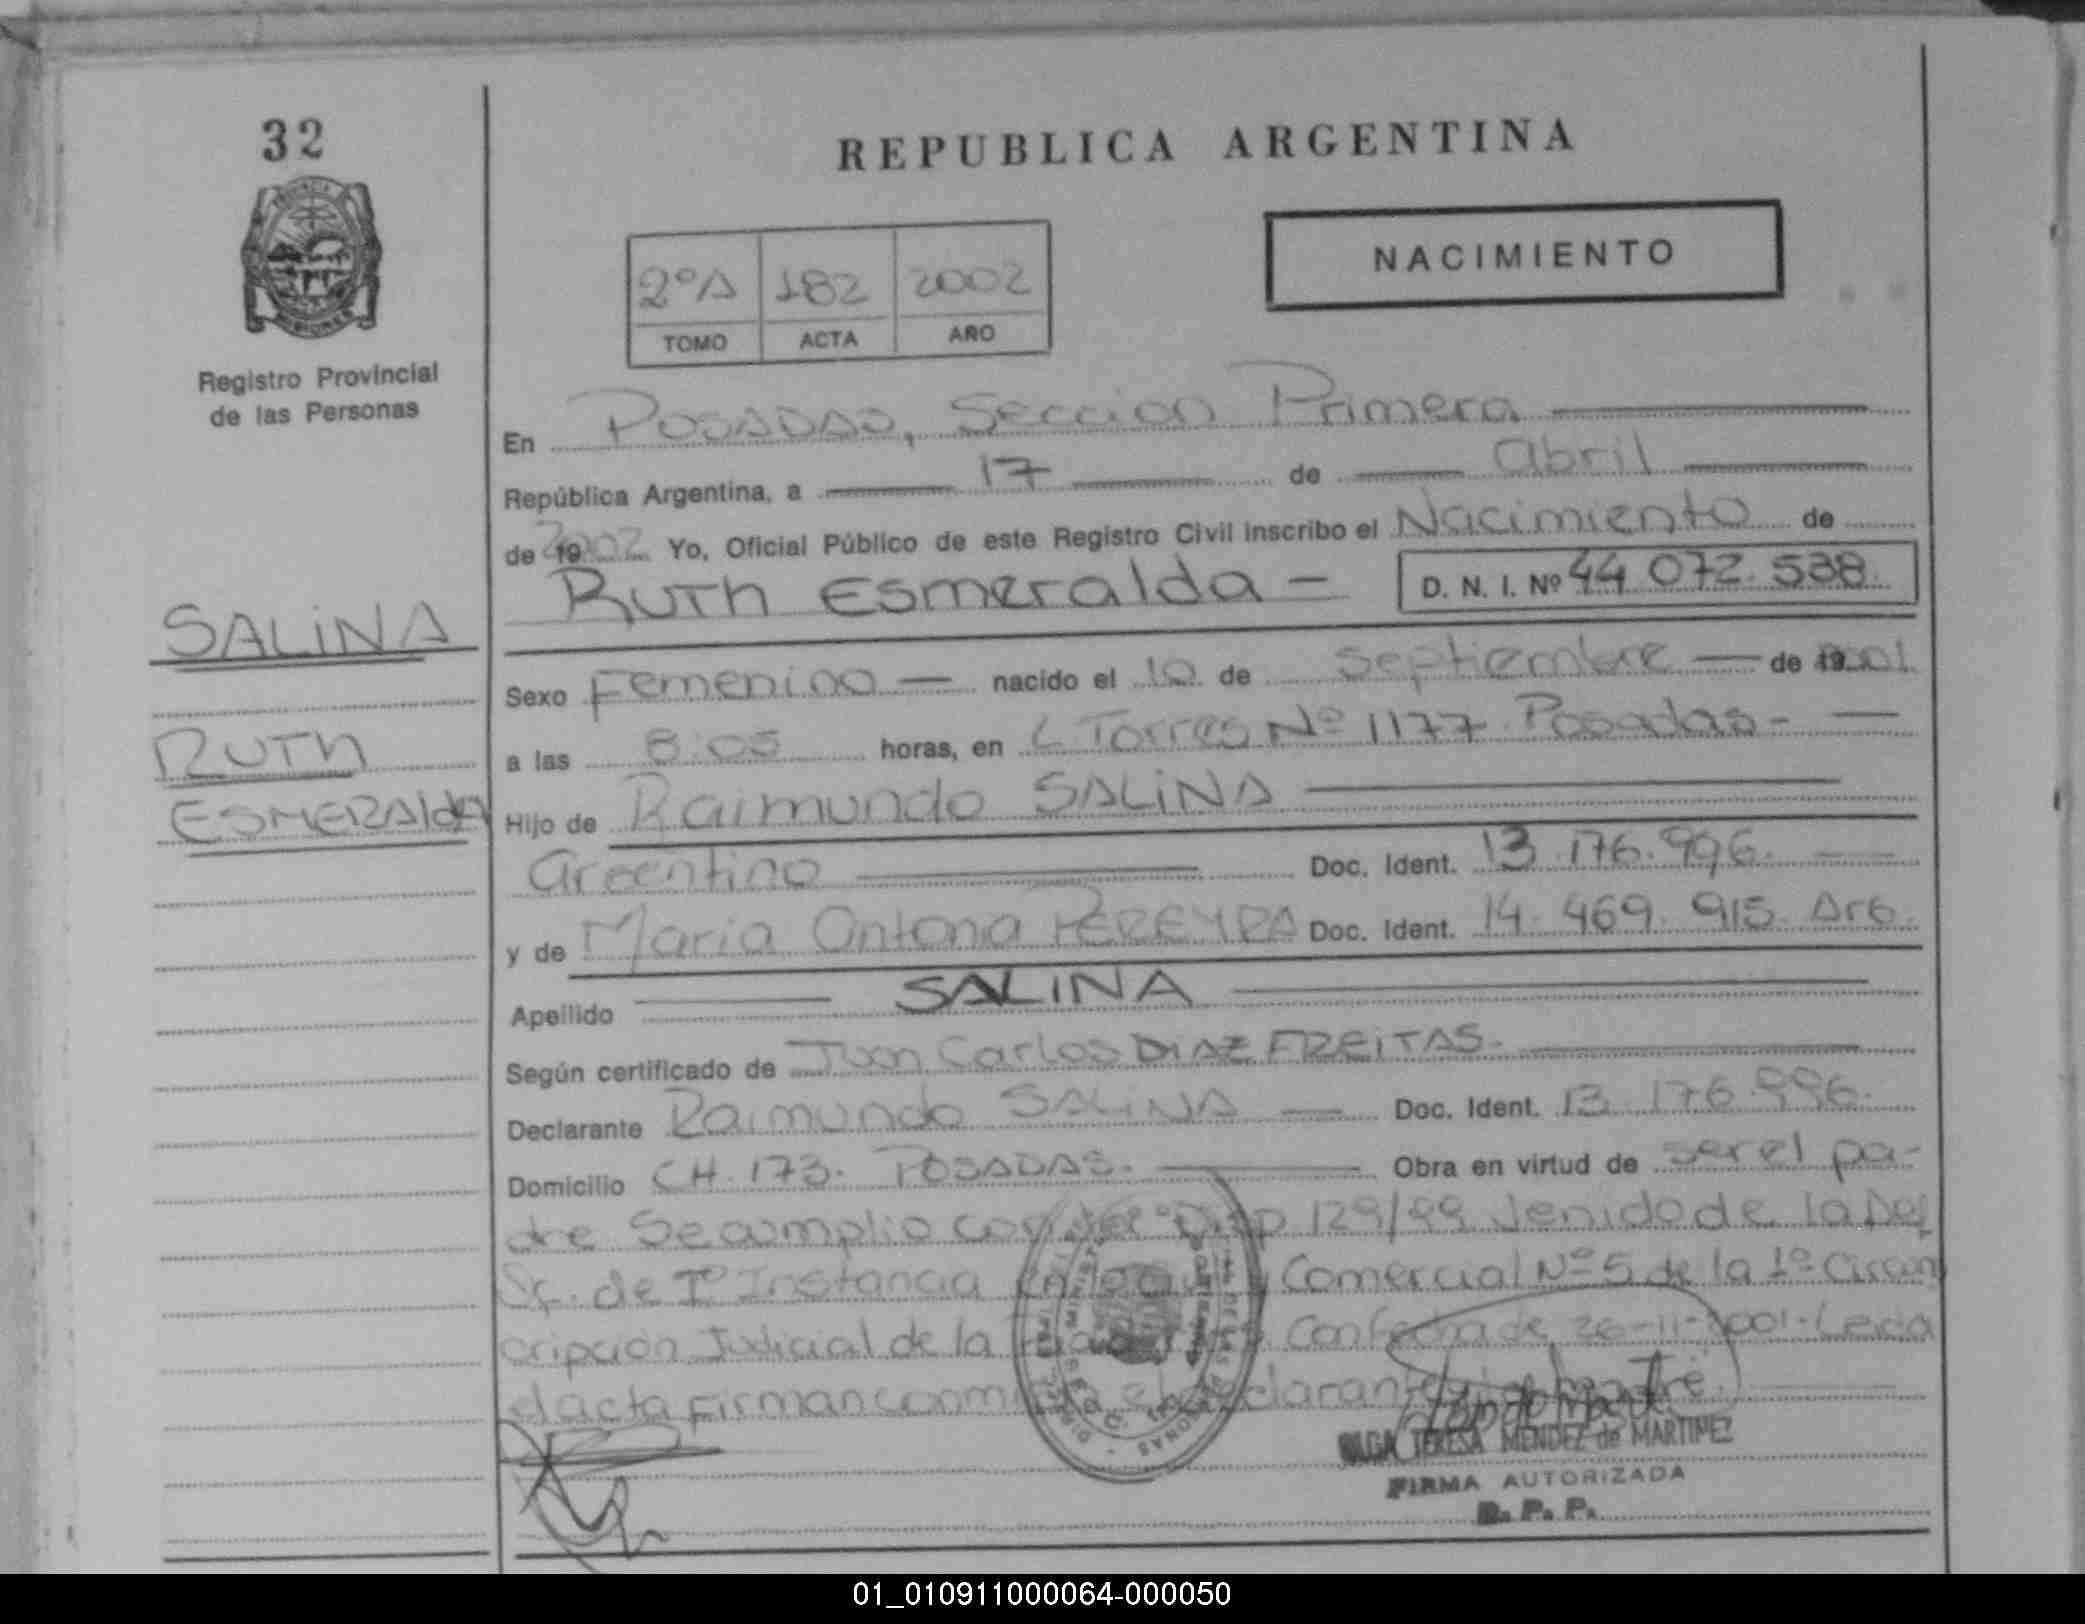 32
REPUBLICA ARGENTINA
NACIMIENTO
2ºA 182 2002
TOMO ACTA AÑO
Registro Provincial
de las Personas
En Posadas, Sección Primera
República Argentina, a 17 de abril
de 19 2002 Yo, Oficial Público de este Registro Civil inscribo el Nacimiento de
RUTH Esmeralda - D. N. I. Nº 44 072. 538.
SALINA
RUTH
ESMERALDA
Sexo Femenino nacido el 10 de septiembre de 19 2001
a las 8:05 horas, en L Torres Nº 1177 Posadas-
Hijo de Raimundo SALINA
argentino Doc. Ident. 13.176.996.
y de Maria Antona PEREYRA Doc. Ident. 14.469.915. Arg.
Apellido SALINA
Según certificado de Juan Carlos DIAZ FREITAS.
Declarante Raimundo SALINA Doc. Ident. 13.176.996.
Domicilio CH. 173. POSADAS. Obra en virtud de ser el pa-
dre Se cumplio con la Disp 129/99 Venido de la Def
de 1º Instancia en lo Comercial Nº 5 de la 1º Circun
cripción Judicial de la Con fecha de 26-11-2001. Leida
el acta firman conmigo el declarante y la madre.
OLGA TERESA MENDEZ de MARTINEZ
FIRMA AUTORIZADA
R. P. P.
01_010911000064-000050